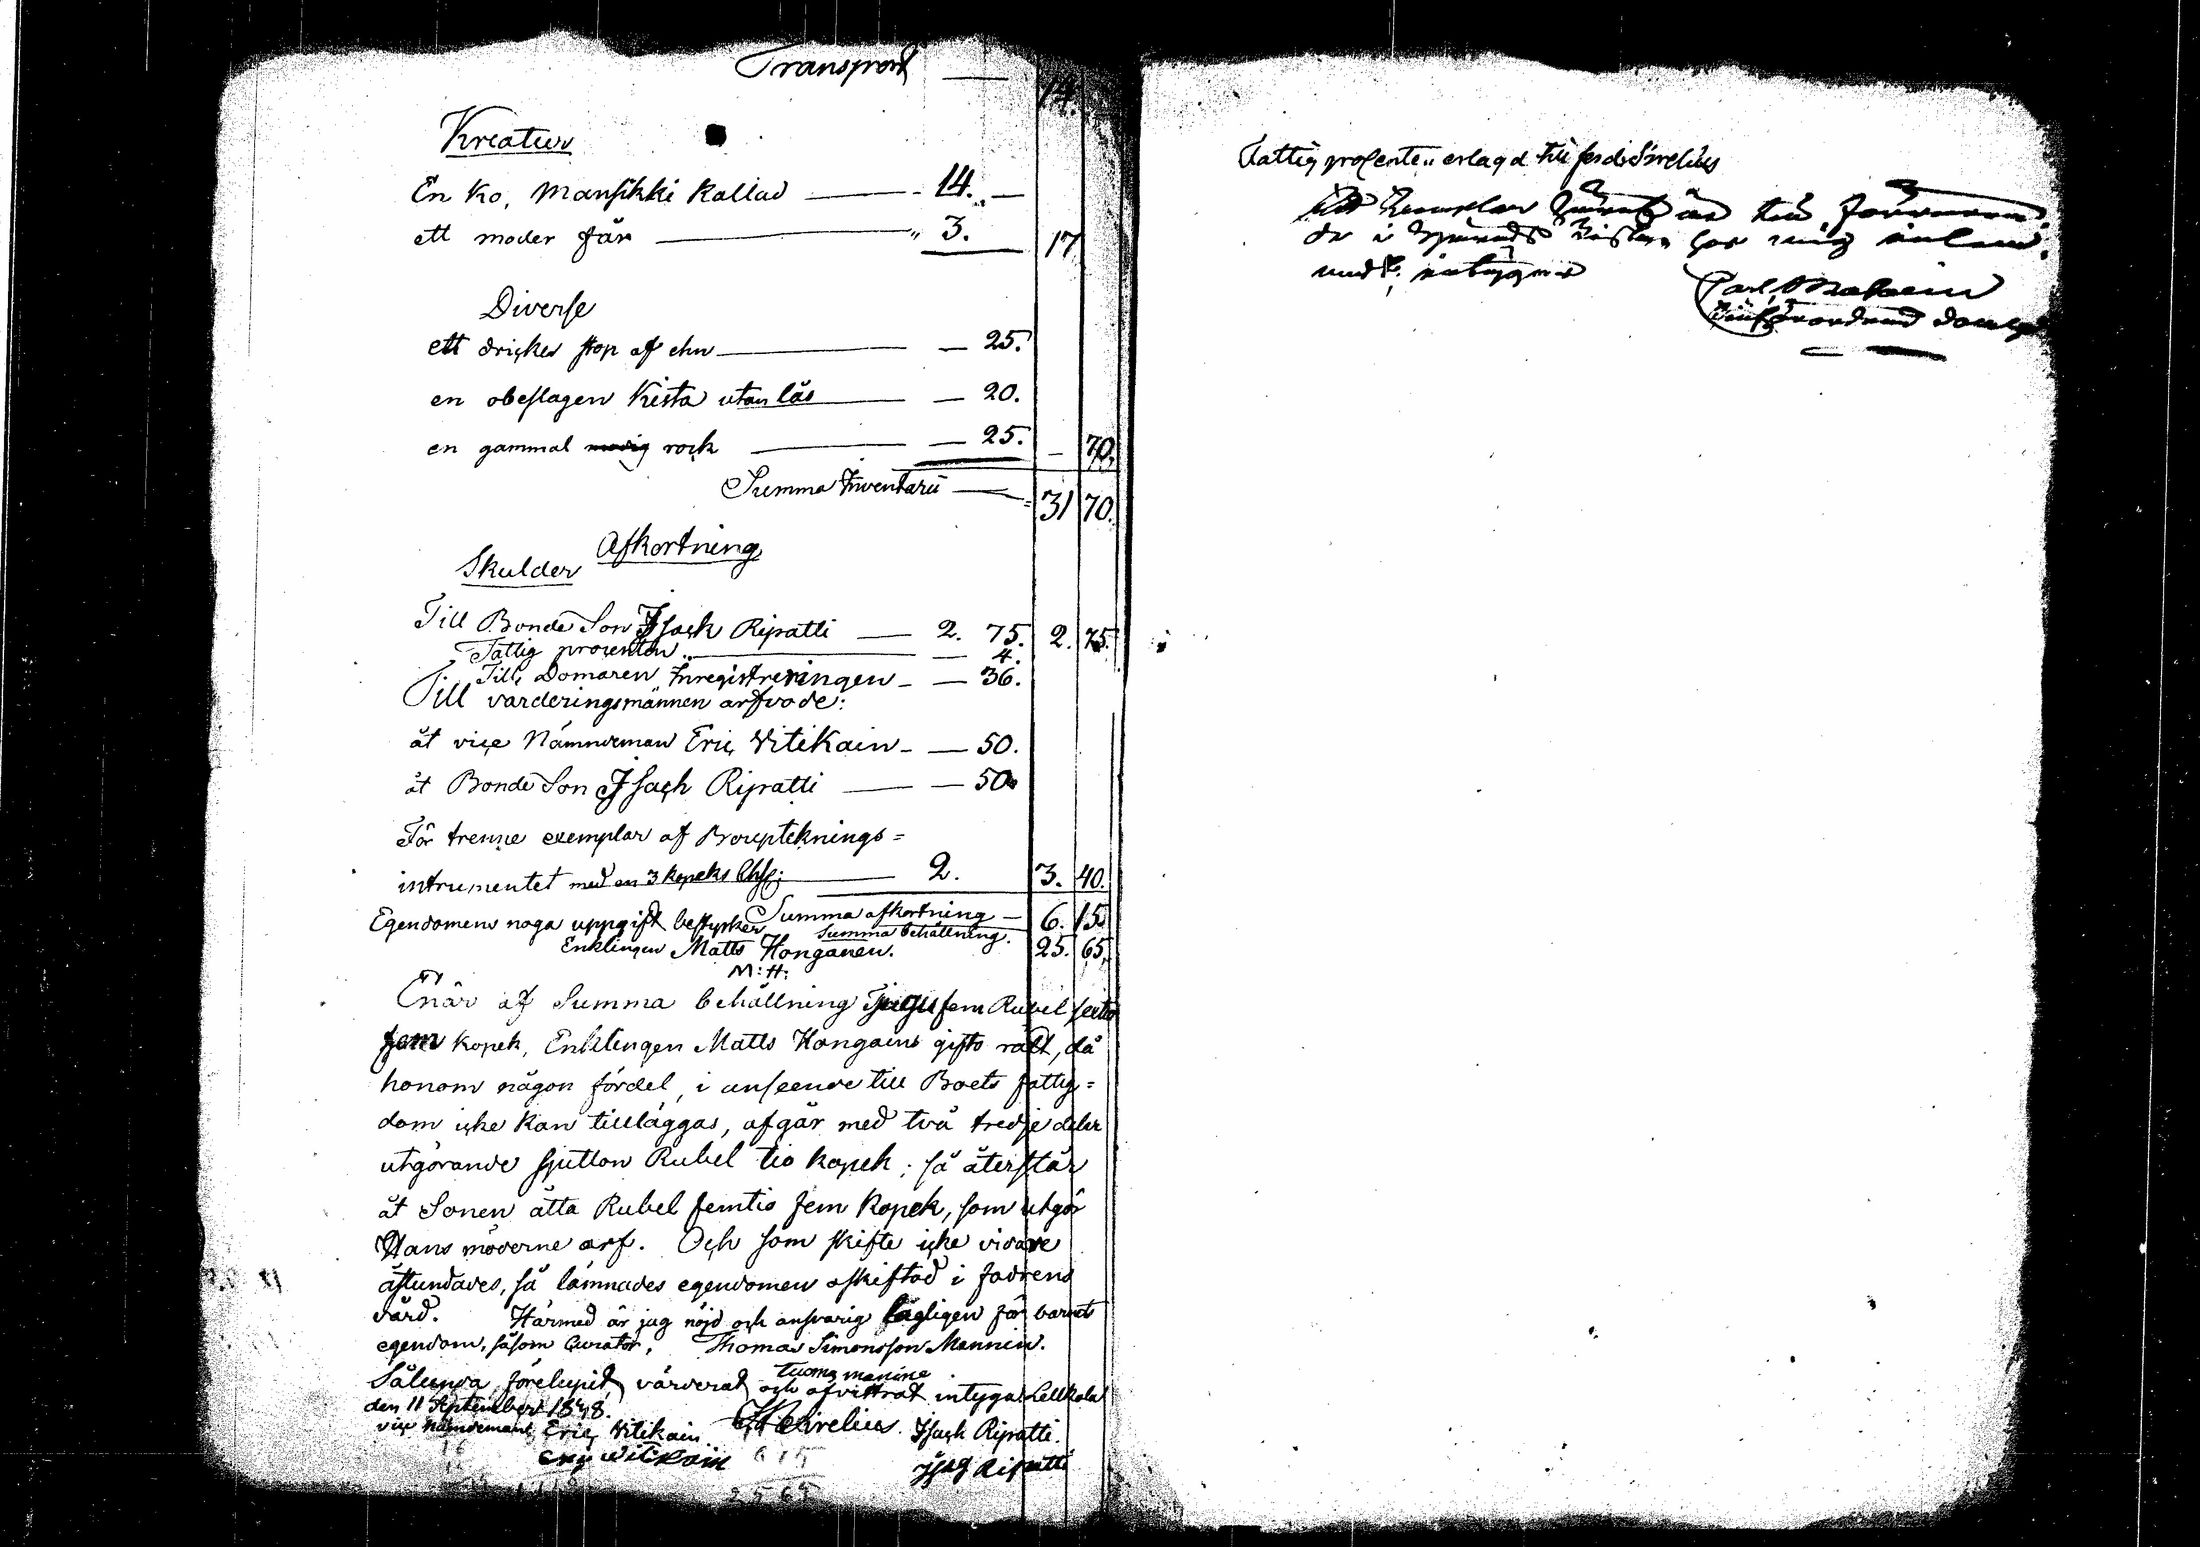 Transport — 14.
Kreatur
En Ko, Mansikki Kallad — 14. —
ett moder får — " 3. 17
Diverse
ett drickes stop af ehn — — 25.
en obeslagen Kista utan lås — — 20.
en gammal rock — — 25. — 70.
Summa Inventarii — 31 70.
Afkortning
Skulder
Till Bonde Son Isack Ripatti — 2. 75. 2. 75.
Fattig procenten — — 4.
Till Domaren Inregistreringen — — 36.
Till värderingsmännen arfvode:
åt vice Nämndeman Eric Vitikain — — 50.
åt Bonde Son Isach Ripatti — — 50.
För trenne exemplar af Boupteknings=
intrumentet med en 3 kopeks Chs: — 2. 3. 40.
Summa afkortning — 6. 15.
Egendomens noga uppgift bestyrker
Summa behållning. 25. 65.
Enklingen Matts Honganen.
M: H:
Enär af Summa behållning tjugufem Rubel sextio
fem kopek, Enklingen Matts Hongains gifto rätt, då
honom någon fördel, i anseende till Boets fattig=
dom icke kan tilläggas, afgår med två tredje delar
utgörande sjutton Rubel tio kopek; så återstår
åt Sonen åtta Rubel femtio fem Kopek, som utgör
Hans möderne arf. Och som skifte icke vidare
åstundades, så lämnades egendomen oskiftad i fadrens
vård. Härmed är jag nöjd och ansvarig lagligen för barnets
egendom, såsom Curator, Thomas Simonsson Mannin.
tuoma manine
Sålunda förelupit, värderat och afvittrat intyga Lellkala
den 11 September 1848.
vice Nämndeman Eric Vitikain Sirelius. Isach Ripatti.
eric witikain 6 15 Isag Ripatti
25 65
Fattig procenten erlagd till Sirelius